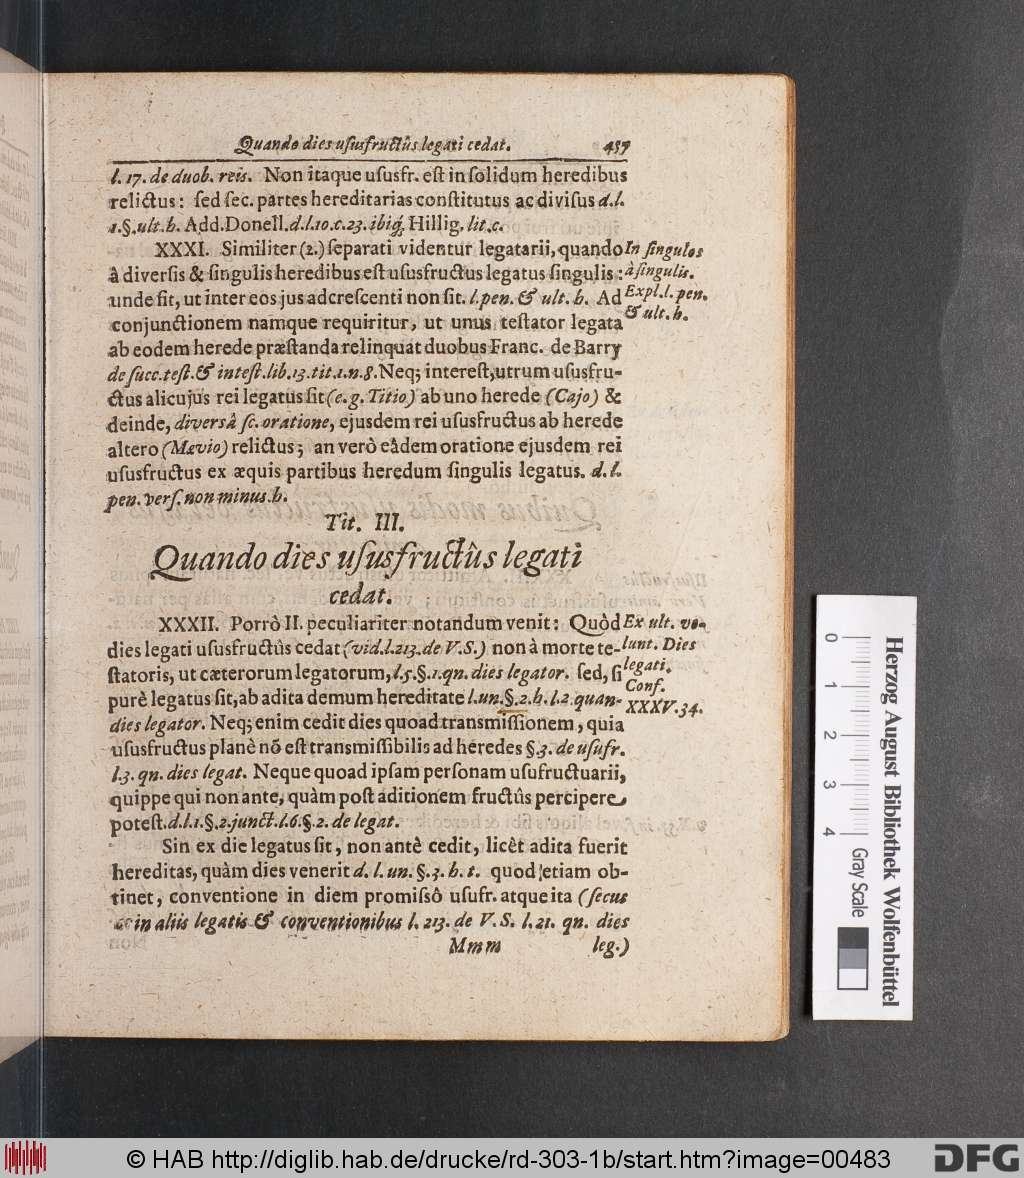 Quando dies uſusfructûs legati cedat. 457
l. 17. de duob. reis. Non itaque uſusfr. eſt in ſolidum heredibus
relictus: ſed ſec. partes hereditarias conſtitutus ac diviſus d. l.
1. §. ult. h. Add. Donell. d. l. 10. c. 23. ibiq́; Hillig. lit. c.
XXXI. Similiter (2.) ſeparati videntur legatarii, quando
à diverſis & ſingulis heredibus eſt uſusfructus legatus ſingulis:
unde fit, ut inter eos jus adcreſcenti non ſit. l. pen. & ult. h. Ad
conjunctionem namque requiritur, ut unus teſtator legata
ab eodem herede præſtanda relinquat duobus Franc. de Barry
de ſucc. teſt. & inteſt. lib. 13. tit. 1. n. 8. Neq; intereſt, utrum uſusfru-
ctus alicujus rei legatus ſit (e. g. Titio) ab uno herede (Cajo) &
deinde, diversâ ſc. oratione, ejusdem rei uſusfructus ab herede
altero (Mævio) relictus; an verò eâdem oratione ejusdem rei
uſusfructus ex æquis partibus heredum ſingulis legatus. d. l.
pen. verſ. non minus. h.
In ſingulos
à ſingulis.
Expl. l. pen.
& ult. h.
Tit. III.
Quando dies uſusfructûs legati
cedat.
XXXII. Porrò II. peculiariter notandum venit: Quòd
dies legati uſusfructûs cedat (vid. l. 213. de V. S.) non à morte te-
ſtatoris, ut cæterorum legatorum, l. 5. §. 1. qn. dies legator. ſed, ſi
purè legatus ſit, ab adita demum hereditate l. un. §. 2. h. l. 2 quan-
dies legator. Neq; enim cedit dies quoad transmiſſionem, quia
uſusfructus planè nõ eſt transmiſſibilis ad heredes §. 3. de uſufr.
l. 3. qn. dies legat. Neque quoad ipſam perſonam uſufructuarii,
quippe qui non ante, quàm poſt aditionem fructûs percipere
poteſt. d. l. 1. §. 2. junct. l. 6. §. 2. de legat.
Ex ult. vo-
lunt. Dies
legati.
Conf.
XXXV. 34.
Sin ex die legatus ſit, non antè cedit, licèt adita fuerit
hereditas, quàm dies venerit d. l. un. §. 3. h. t. quod etiam ob-
tinet, conventione in diem promiſsô uſufr. atque ita (ſecus
ac in aliis legatis & conventionibus l. 213. de V. S. l. 21. qn. dies
Mmm leg.)
Herzog August Bibliothek Wolfenbüttel
Gray Scale
0 1 2 3 4
© HAB http://diglib.hab.de/drucke/rd-303-1b/start.htm?image=00483
DFG